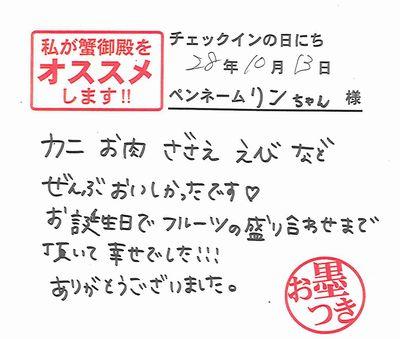 私が蟹御殿を
オススメ
します!!
チェックインの日にち
28年10月13日
ペンネーム リンちゃん 様
カニ お肉 さざえ えび など
ぜんぶおいしかったです♡
お誕生日でフルーツの盛り合わせまで
頂いて幸せでした!!!
ありがとうございました。
お墨つき